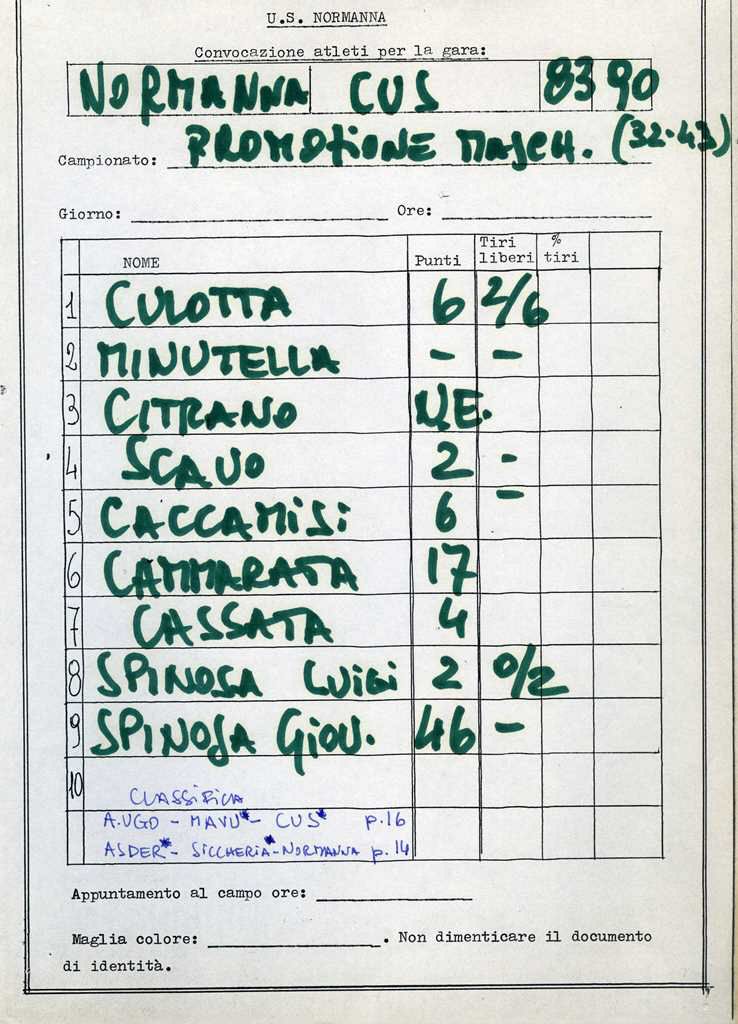 U.S. NORMANNA
Convocazione atleti per la gara:
NORMANNA CUS 83 90
Campionato: PROMOZIONE MASCH. (32-43)
Giorno: Ore:
NOME Punti Tiri liberi % tiri
1 CULOTTA 6 2/6
2 MINUTELLA - -
3 CITRANO N.E.
4 SCAVO 2 -
5 CACCAMISI 6 -
6 CAMMARATA 17
7 CASSATA 4
8 SPINOSA LUIGI 2 0/2
9 SPINOSA GIOV. 46 -
10
CLASSIFICA
A.UGO - MAVU* - CUS* p.16
ASDER* - SICCHERIA* - NORMANNA p.14
Appuntamento al campo ore:
Maglia colore: . Non dimenticare il documento
di identità.